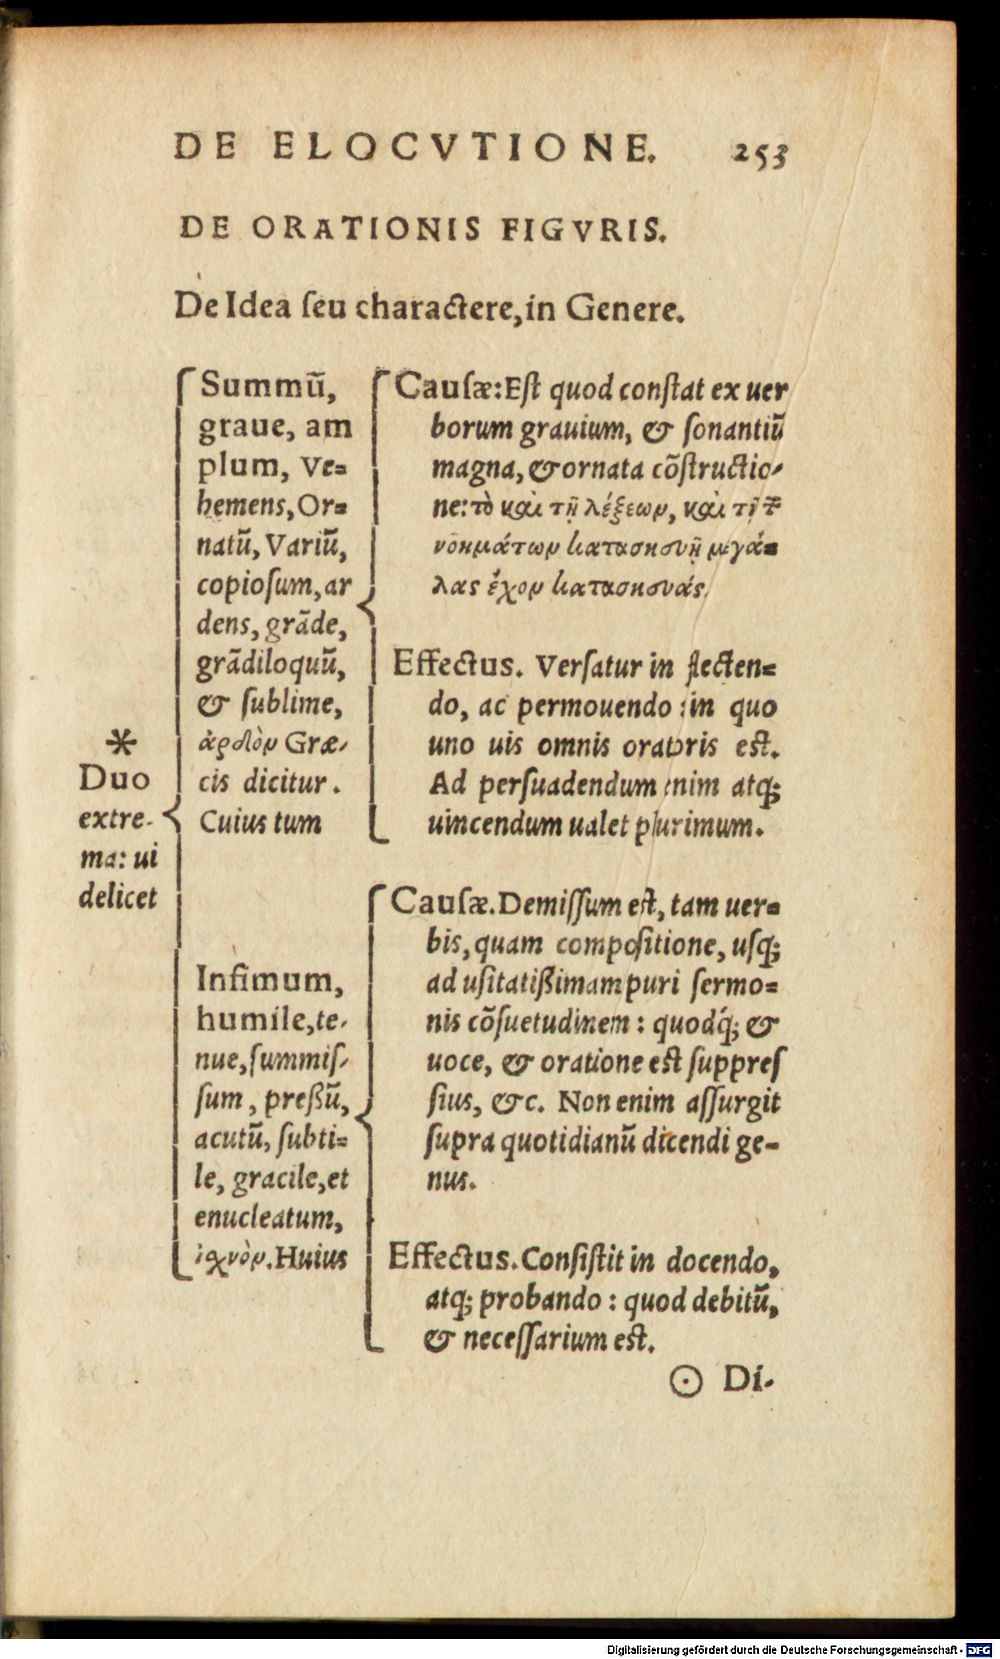 DE ELOCVTIONE. 253
DE ORATIONIS FIGVRIS.
De Idea ſeu charactere, in Genere.
✳
Duo
extre-
ma: ui
delicet
Summū,
graue, am
plum, Ve=
hemens, Or=
natū, Variū,
copioſum, ar
dens, grāde,
grādiloquū,
& ſublime,
ἁδρὸν Græ-
cis dicitur.
Cuius tum
Cauſæ: Eſt quod conſtat ex uer
borum grauium, & ſonantiū
magna, & ornata cōſtructio-
ne: τὸ καὶ τῇ λέξεων, καὶ τῇ τ͂
νοημάτων κατασκευῇ μεγά=
λας ἔχον κατασκευάς.
Effectus. Verſatur in flecten=
do, ac permouendo: in quo
uno uis omnis oratoris eſt.
Ad perſuadendum enim atq;
uincendum ualet plurimum.
Infimum,
humile, te-
nue, ſummiſ-
ſum, preßū,
acutū, ſubti=
le, gracile, et
enucleatum,
ἰσχνὸν. Huius
Cauſæ. Demiſſum eſt, tam uer=
bis, quam compoſitione, uſq;
ad uſitatißimam puri ſermo=
nis cōſuetudinem: quodq́; &
uoce, & oratione eſt ſuppreſ
ſius, &c. Non enim aſſurgit
ſupra quotidianū dicendi ge-
nus.
Effectus. Conſiſtit in docendo,
atq; probando: quod debitū,
& neceſſarium eſt.
☉ Di-
Digitalisierung gefördert durch die Deutsche Forschungsgemeinschaft - DFG